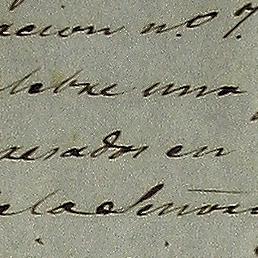 acion n.o 7.
lebre una
resados en
a la Señora